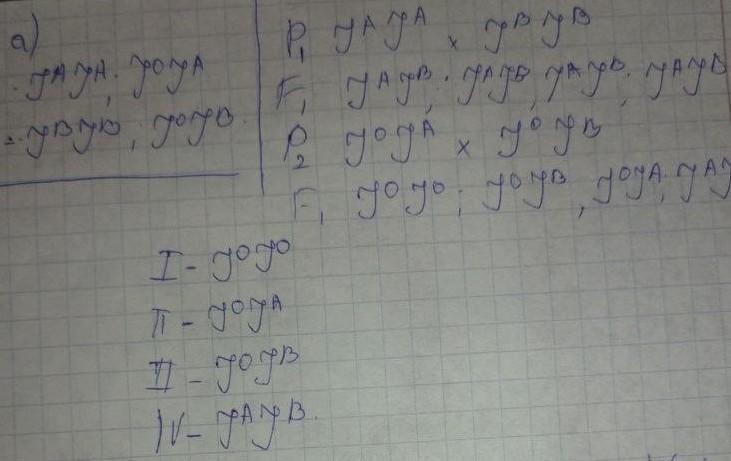 а)
J^A J^A; J^O J^A
J^B J^B; J^O J^B
P₁ J^A J^A × J^B J^B
F₁ J^A J^B; J^A J^B, J^A J^B; J^A J^B
P₂ J^O J^A × J^O J^B
F₁ J^O J^O; J^O J^B, J^O J^A, J^A J
I - J^O J^O
II - J^O J^A
III - J^O J^B
IV - J^A J^B.